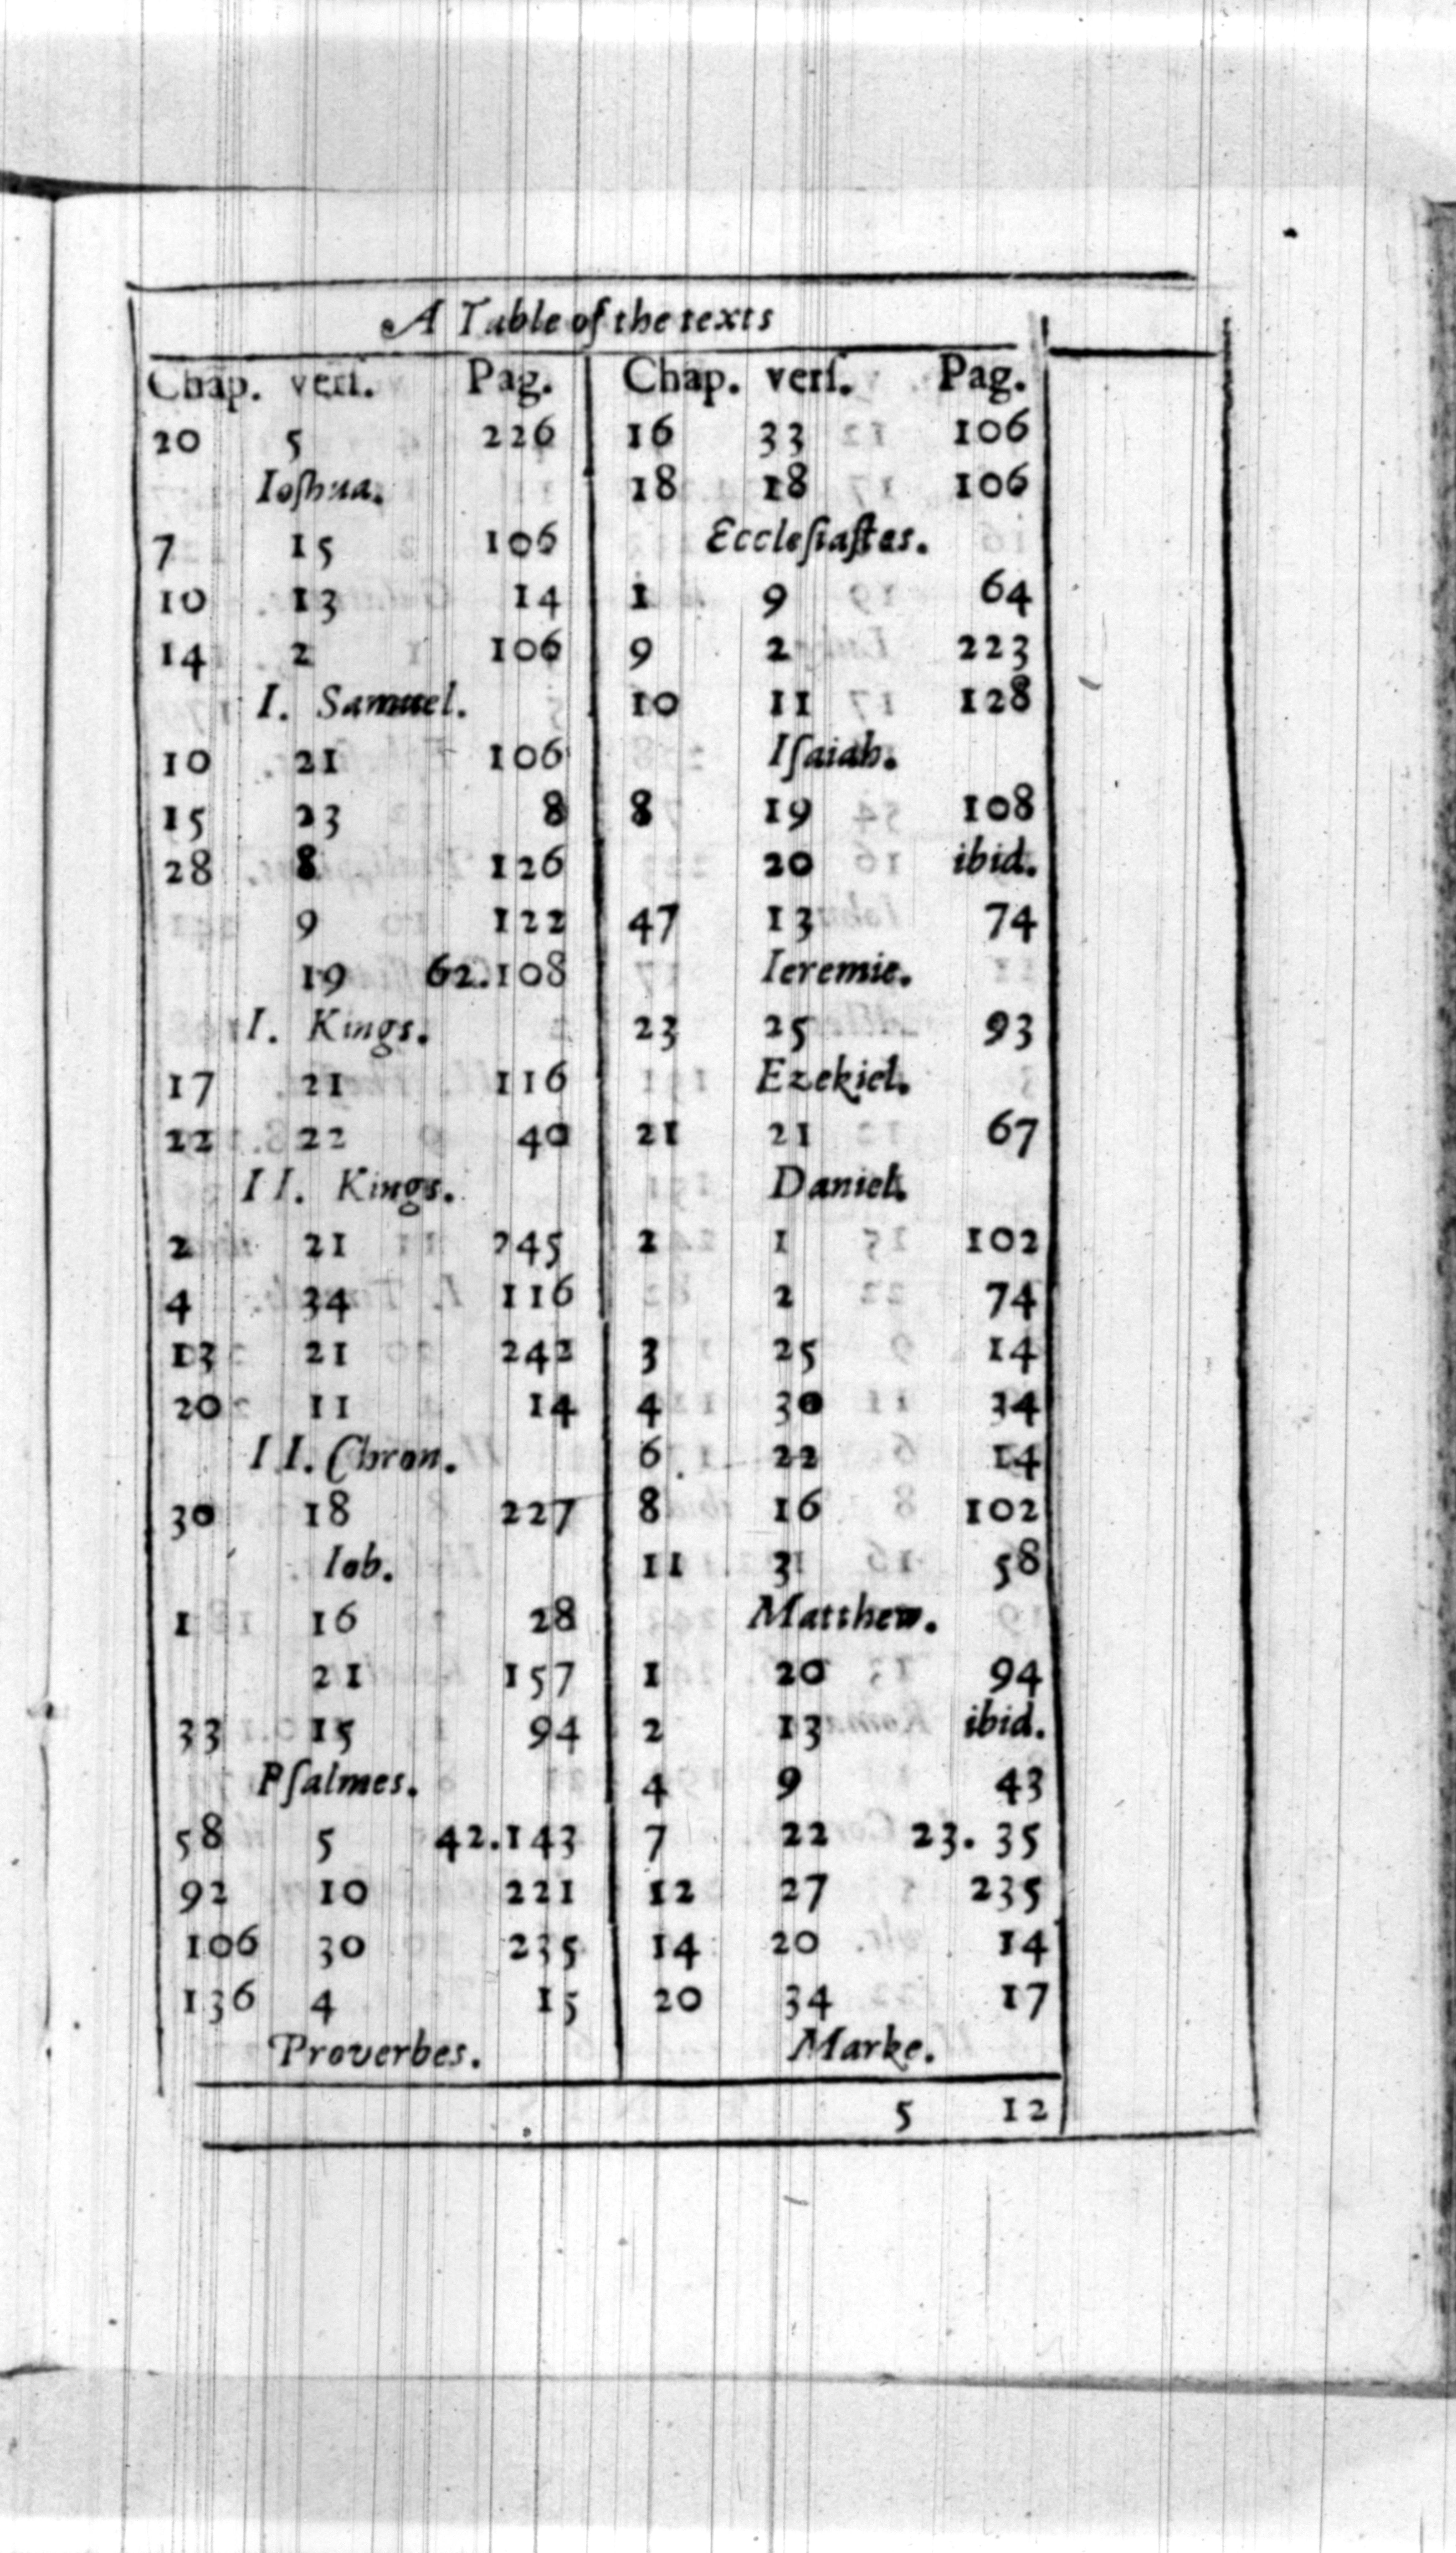 A Table of the texts
Chap. verſ. Pag.
20 5 226
Ioſhua.
7 15 106
10 13 14
14 2 106
I. Samuel.
10 21 106
15 23 8
28 8 126
9 122
19 62.108
I. Kings.
17 21 116
22 22 40
II. Kings.
2 21 245
4 34 116
13 21 242
20 11 14
II. Chron.
30 18 227
Iob.
1 16 28
21 157
33 15 94
Pſalmes.
58 5 42.143
92 10 221
106 30 235
136 4 15
Proverbes.
Chap. verſ. Pag.
16 33 106
18 18 106
Eccleſiaſtes.
1 9 64
9 2 223
10 11 128
Iſaiah.
8 19 108
20 ibid.
47 13 74
Ieremie.
23 25 93
Ezekiel.
21 21 67
Daniel.
2 1 102
2 74
3 25 14
4 30 34
6 22 14
8 16 102
11 3 58
Matthew.
1 20 94
2 13 ibid.
4 9 43
7 22 23. 35
12 27 235
14 20 14
20 34 17
Marke.
5 12